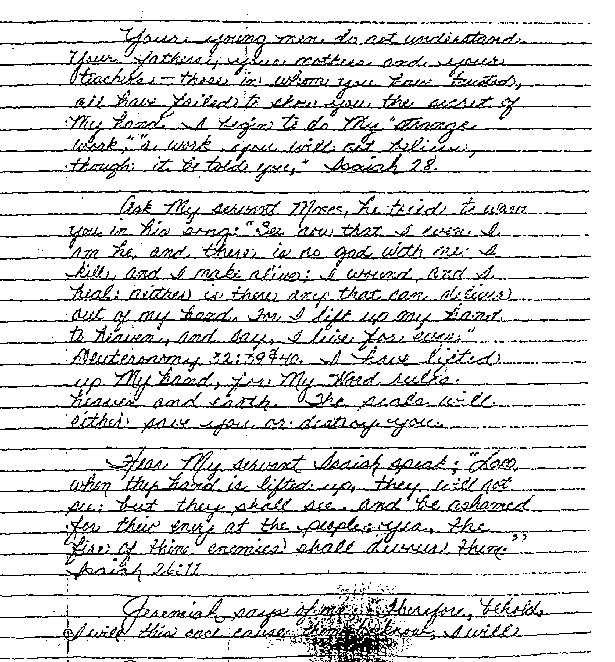 Your young men do not understand.
Your fathers, your mothers and your
teachers - those in whom you have trusted,
all have failed to show you the secret of
My hand. I begin to do My "strange
work," "a work you will not believe,
though it be told you," Isaiah 28.
Ask My servant Moses, he tried to warn
you in his song: "See now that I even I
am he, and there is no god with me: I
kill, and I make alive; I wound, and I
heal: neither is there any that can deliver
out of my hand. For I lift up my hand
to heaven, and say, I live for ever."
Deuteronomy 32:39&40. I have lifted
up My hand, for My Word rules
heaven and earth. The seals will
either save you or destroy you.
Hear My servant Isaiah speak; "Lord,
when thy hand is lifted up, they will not
see: but they shall see, and be ashamed
for their envy at the people: yea, the
fire of thine enemies shall devour them."
Isaiah 26:11
Jeremiah says of me: Therefore, behold,
I will this once cause them to know, I will